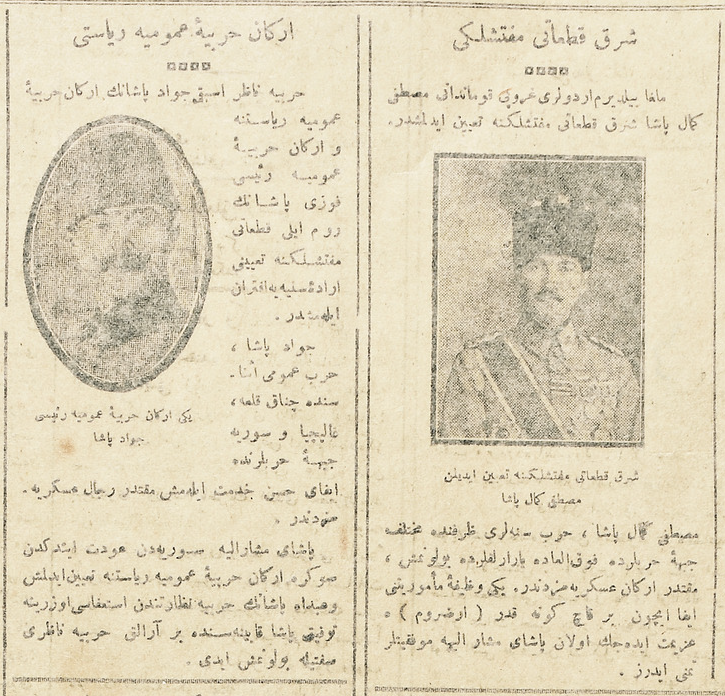 شرق قطعاتی مفتشلکی
ملغا ییلدیرم اردولری غروپی قوماندانی مصطفی
کمال پاشا شرق قطعاتی مفتشلکنه تعیین ایدلمشدر.
شرق قطعاتی مفتشلکنه تعیین ایدیلن
مصطفی کمال پاشا
مصطفی کمال پاشا ، حرب سنه‌لری ظرفنده مختلف
جبهۀ حربلرده فوق العاده یارارلقلرده بولونمش ،
مقتدر ارکان عسکریه‌مزدندر. یکی وظیفۀ مأموریتنی
ایفا ایچون بر قاچ کونه قدر ( ارضروم ) ه
عزیمت ایده‌جك اولان پاشای مشار الیهه موفقیتلر
تمنی ایدرز .
ارکان حربیۀ عمومیه ریاستی
حربیه ناظر اسبقی جواد پاشانك ارکان حربیۀ
عمومیه ریاستنه
و ارکان حربیۀ
عمومیه رئیسی
فوزی پاشانك
روم ایلی قطعاتی
مفتشلکنه تعیینی
ارادۀ سنیه‌یه اقتران
ایله‌مشدر .
جواد پاشا ،
حرب عمومی اثنا-
سنده چناق قلعه ،
غالیچیا و سوریه
جبهۀ حربلرنده
ایفای حسن خدمت ایله‌مش مقتدر رجال عسکریه-
مزدندر .
یکی ارکان حربیۀ عمومیه رئیسی
جواد پاشا
پاشای مشارالیه سوریه‌دن عودت ایتدکدن
صوکره ارکان حربیۀ عمومیه ریاستنه تعیین ایدلمش
پاشانك حربیه نظارتندن استعفاسی اوزرینه
توفیق پاشا قابینه‌سنده بر آرالق حربیه ناظری
صفتیله بولونمش ایدی .